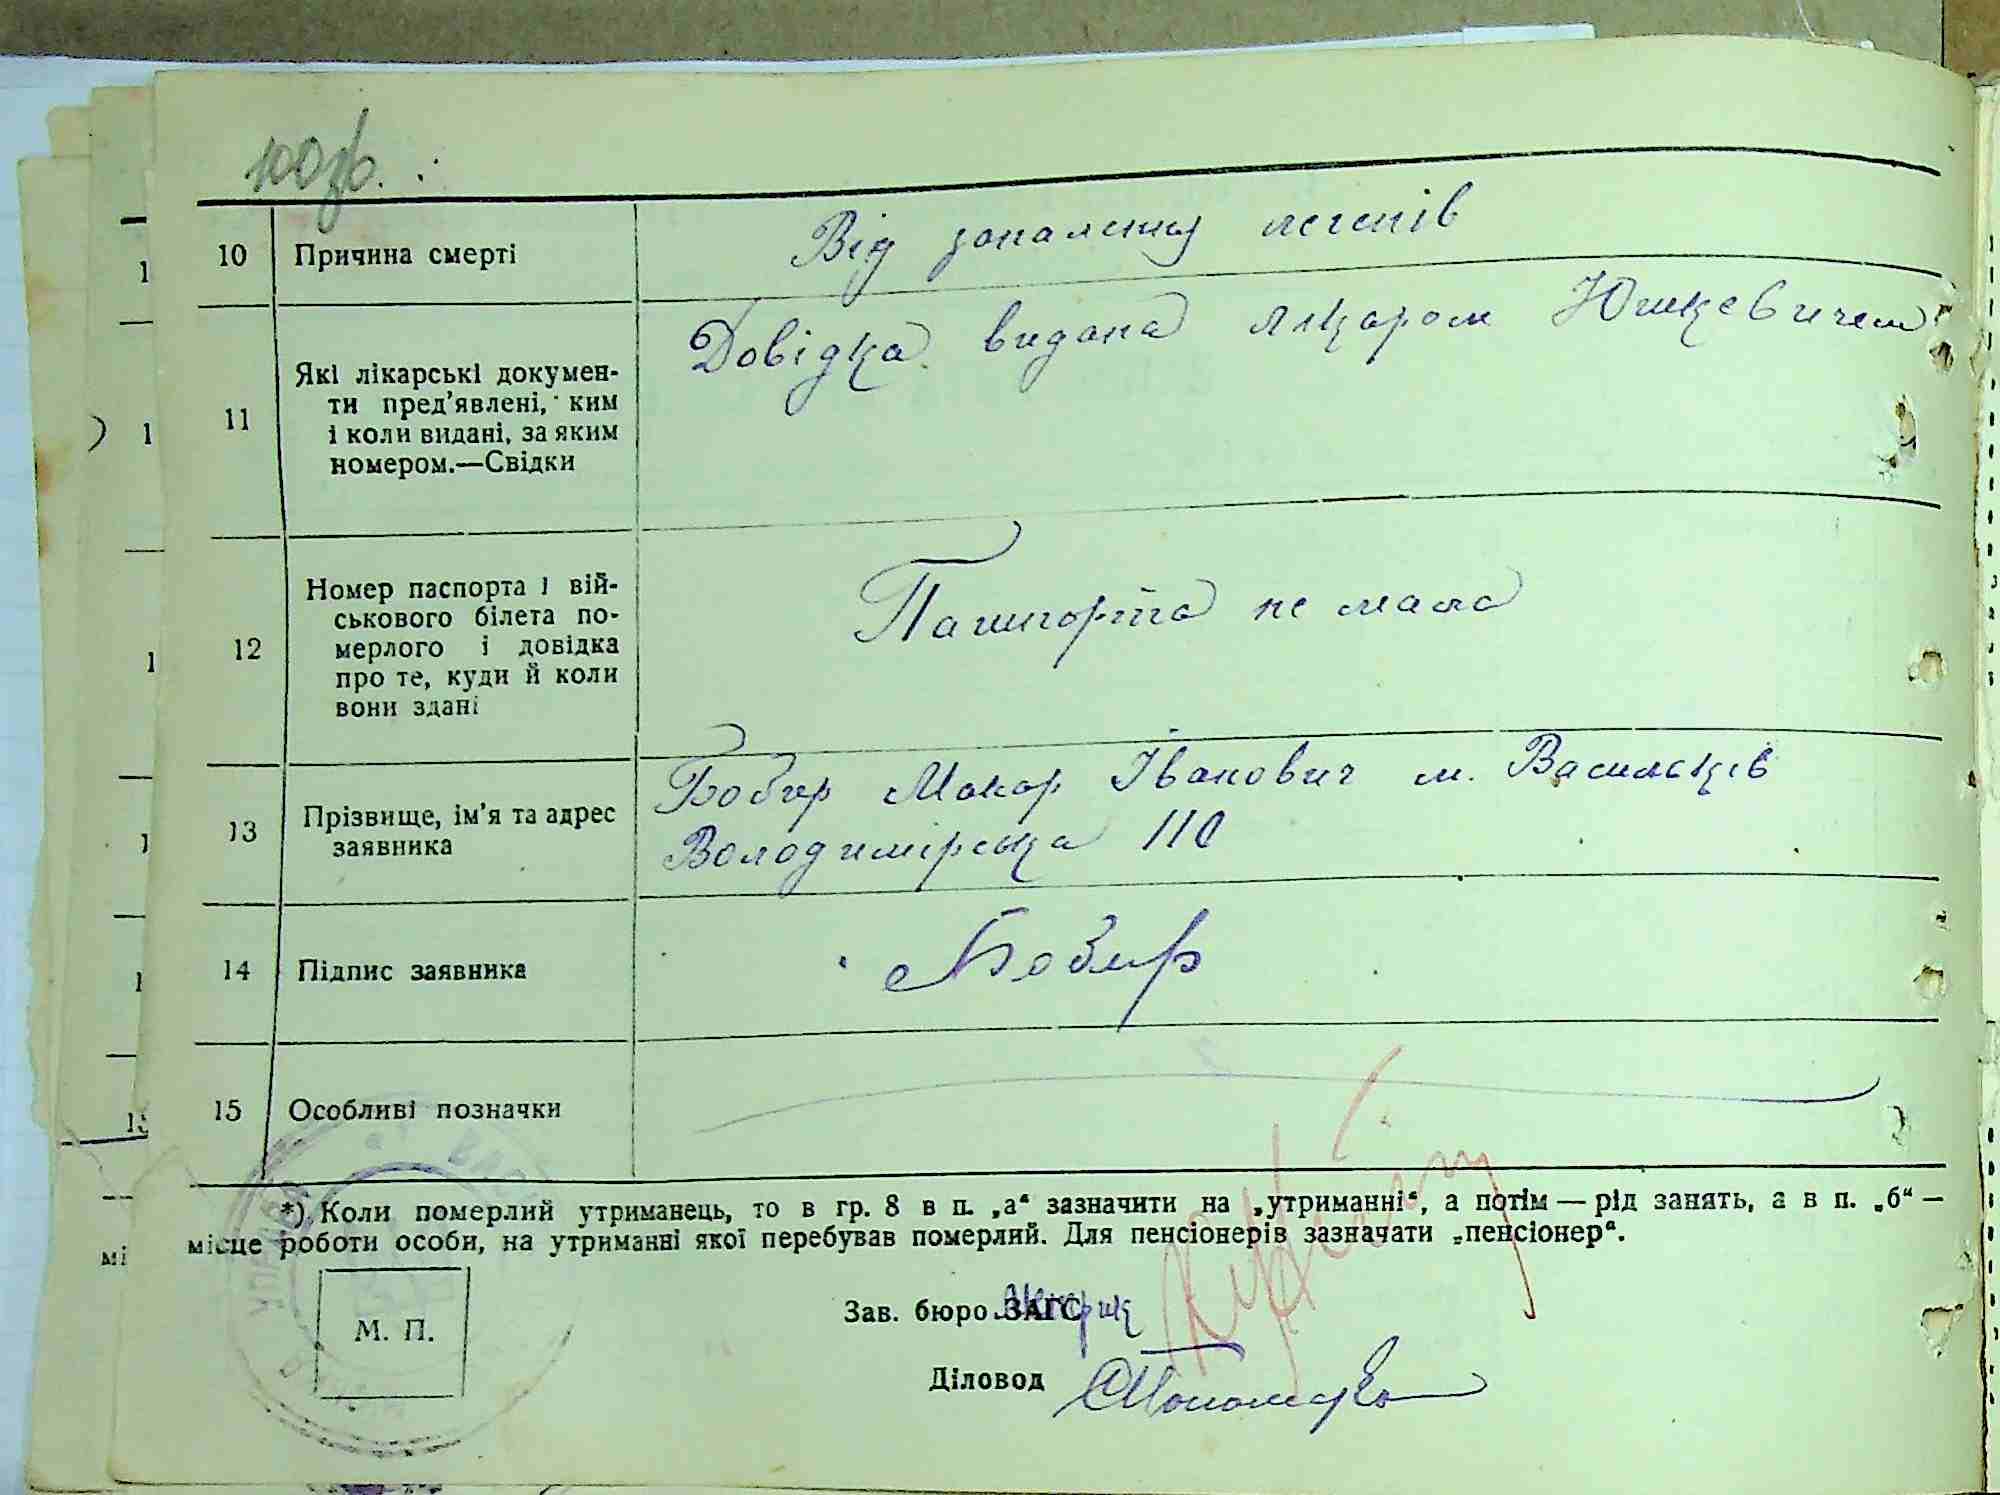 100зв.
10 Причина смерті Від запалення легенів
11 Які лікарські докумен-
ти пред’явлені, ким
і коли видані, за яким
номером.—Свідки
Довідка видана лікаром Юшкевичем
12 Номер паспорта і вій-
ськового білета по-
мерлого і довідка
про те, куди й коли
вони здані
Пашпорта не мала
13 Прізвище, ім’я та адрес
заявника
Бобир Макар Іванович м. Васильків
Володимірська 110
14 Підпис заявника Бобир
15 Особливі позначки
*) Коли померлий утриманець, то в гр. 8 в п. „а“ зазначити на „утриманні“, а потім — рід занять, а в п. „б“ —
місце роботи особи, на утриманні якої перебував померлий. Для пенсіонерів зазначати „пенсіонер“.
М. П.
Зав. бюро ЗАГС
Діловод